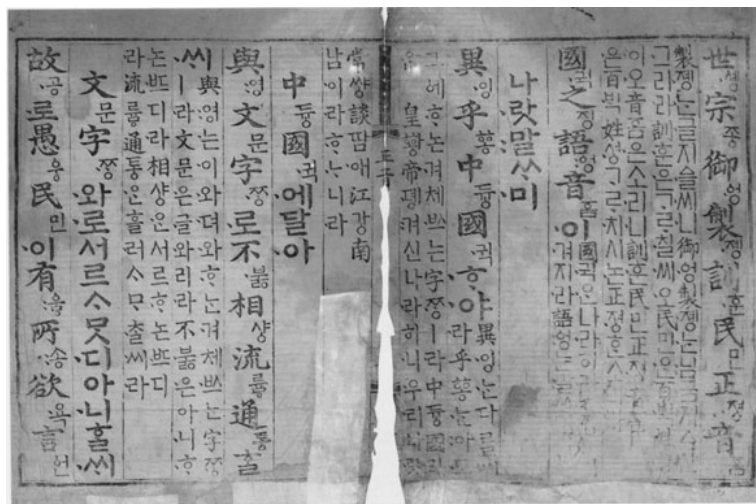 世솅宗종御엉製졩訓훈民민正졍音
製졩는글지슬씨니御엉製졩는님금지스
그리라訓훈은ᄀᆞᄅᆞ칠씨오民민ᄋᆞᆫ百
이오音ᅙᅳᆷ은소리니訓훈民민正졍音
은百ᄇᆡᆨ姓셩ᄀᆞᄅᆞ치시논正졍ᄒᆞᆫ
國귁之징語ᅌᅥᆼ音ᅙᅳᆷ이國귁ᄋᆞᆫ나라히
겨지라語ᅌᅥᆼ는
나랏말ᄊᆞ미
異잉乎ᅘᅩᆼ中듀ᇰ國귁ᄒᆞ야異잉ᄂᆞᆫ다ᄅᆞᆯ씨
라乎ᅘᅩᆼᄂᆞᆫ아모
그ᅌᅦᄒᆞ논겨체ᄡᅳ는字ᄍᆞᆼㅣ라中듀ᇰ國귁
ᄋᆞᆫ皇ᅘᅪᇰ帝뎽겨신나라히니우리나랏
常쌰ᇰ談땀애江가ᇰ南
남이라ᄒᆞᄂᆞ니라
中듀ᇰ國귁에달아
與영文문字ᄍᆞᆼ로不부ᇙ相샤ᇰ流류ᇢ通토ᇰᄒᆞᆯ
ᄊᆡ與영는이와뎌와ᄒᆞᄂᆞᆫ겨체ᄡᅳ는字ᄍᆞᆼ
ㅣ라文문은글와리라不부ᇙ은아니ᄒᆞ
논ᄠᅳ디라相샤ᇰᄋᆞᆫ서르ᄒᆞ논ᄠᅳ디
라流류ᇢ通토ᇰᄋᆞᆫ흘러ᄉᆞᄆᆞᄎᆞᆯ씨라
文문字ᄍᆞᆼ와로서르ᄉᆞᄆᆞᆺ디아니ᄒᆞᆯᄊᆡ
故공로愚ᅌᅮᆼ民민이有ᅌᅮᇢ所송欲욕言언